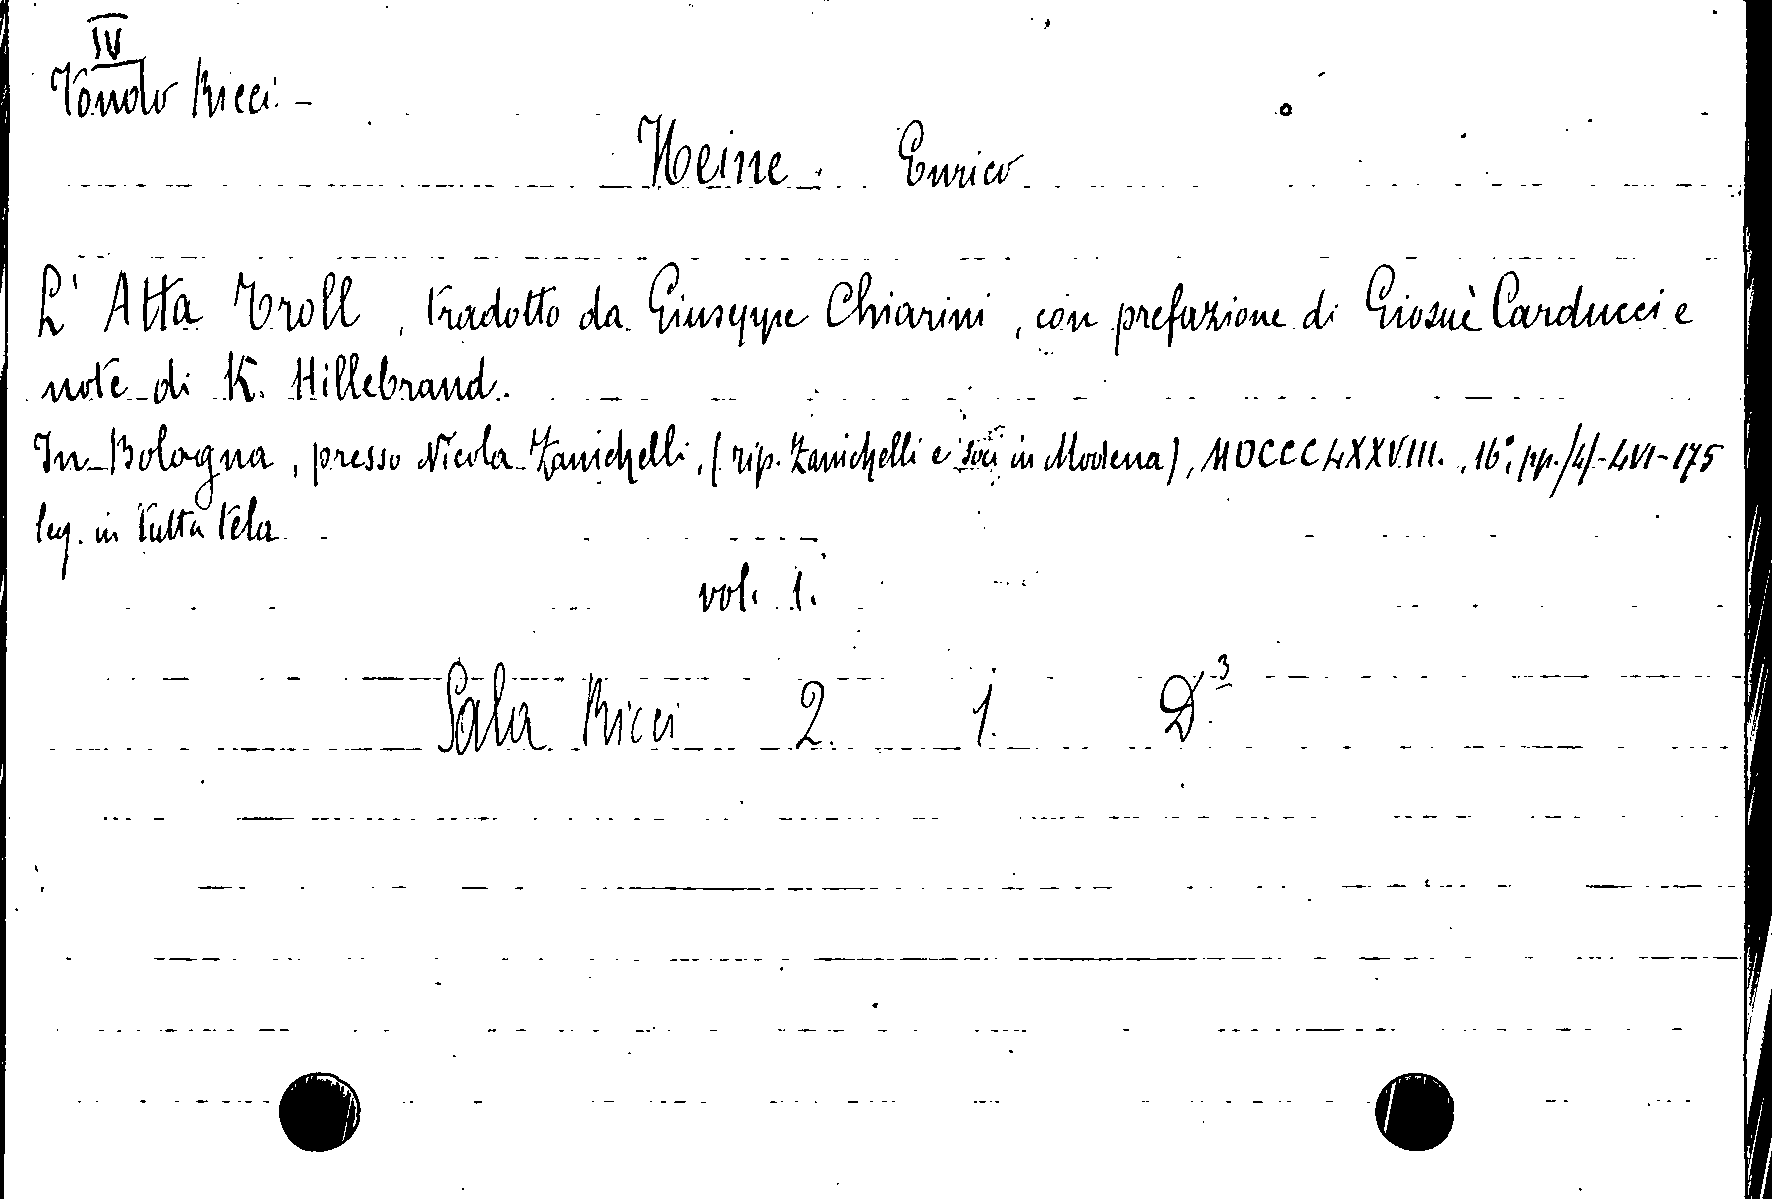 IV
Fondo Ricci. -
Heine. Enrico
L' Atta Troll, tradotto da Giuseppe Chiarini, con prefazione di Giosuè Carducci e
note di K. Hillebrand.
In Bologna, presso Nicola Zanichelli, (tip. Zanichelli e soci in Modena), MDCCCLXXVIII., 16°, pp. /4/-LVI-175
leg. in tutta tela
vol. 1.
Sala Ricci 2. 1. D.3